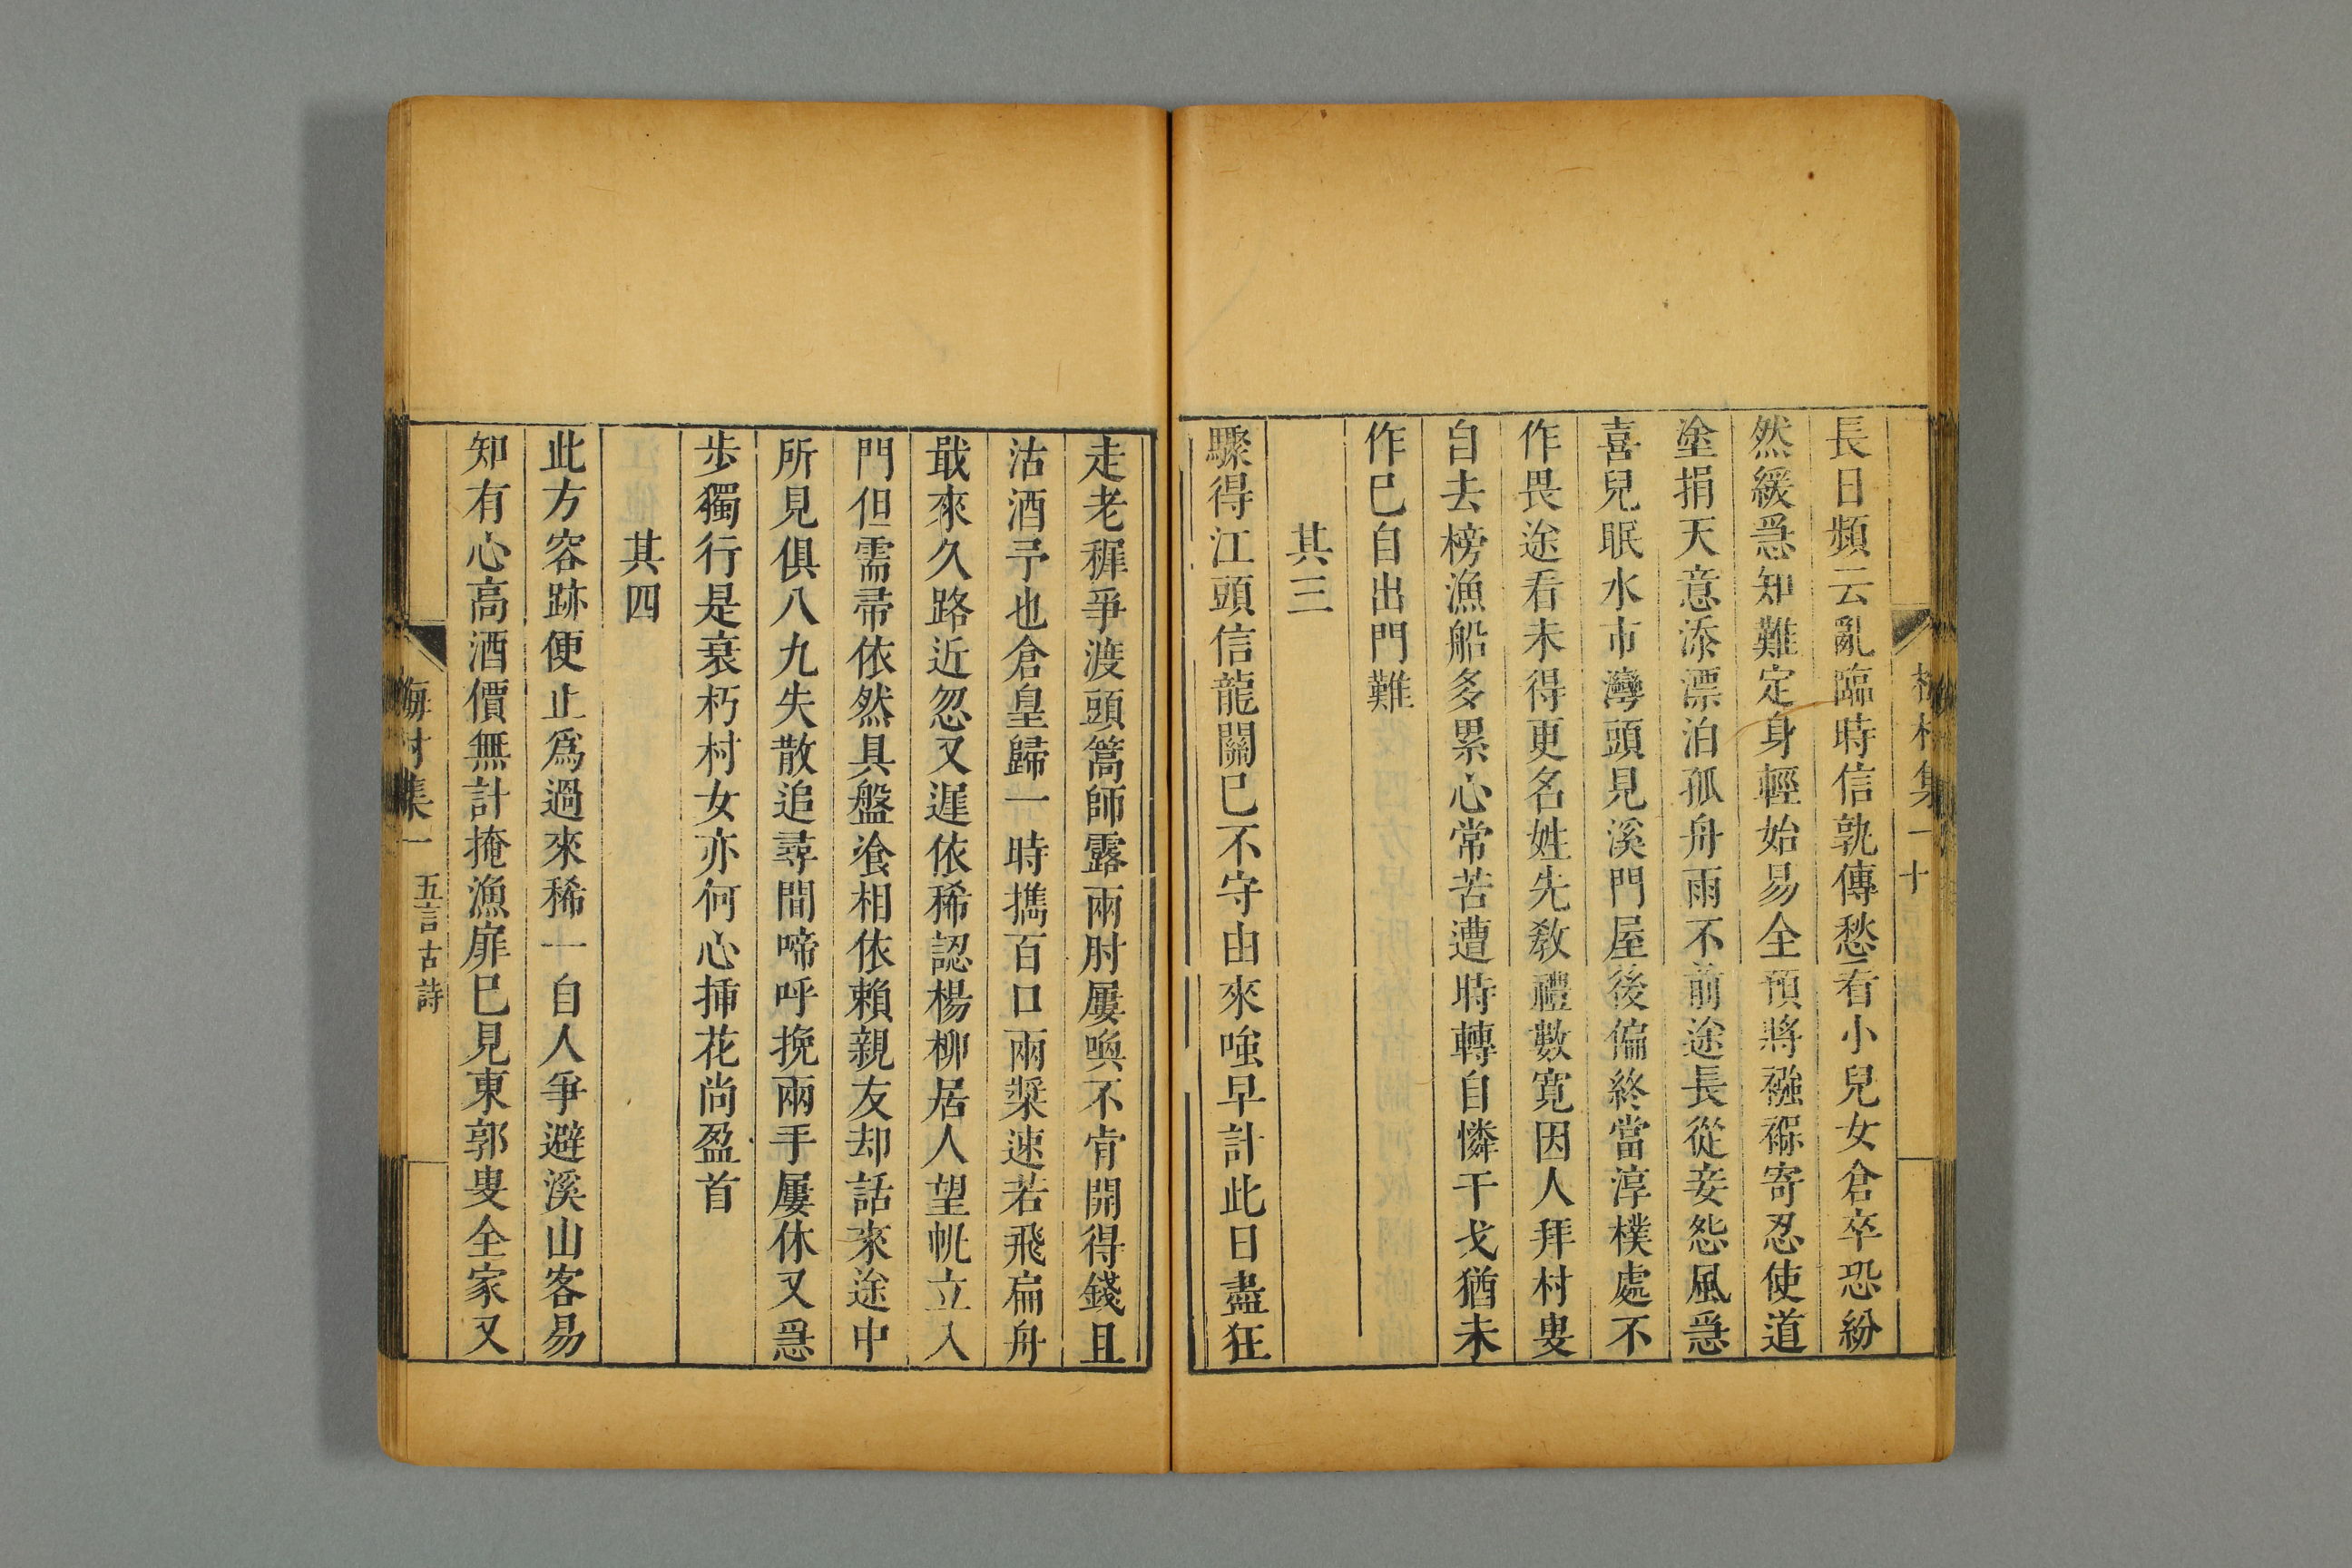 梅村集一 十
長日頻云亂臨時信孰傳愁看小兒女倉卒恐紛
然緩急知難定身輕始易全預將襁褓寄忍使道
塗捐天意添漂泊孤舟雨不前途長從妾怨風急
喜兒眠水市灣頭見溪門屋後偏終當淳樸處不
作畏途看未得更名姓先敎禮數寬因人拜村叟
自去榜漁船多累心常苦遭時轉自憐干戈猶未
作巳自出門難
其三
驟得江頭信龍關巳不守由來嗤早計此日盡狂
走老穉爭渡頭篙師露兩肘屢喚不肯開得錢且
沽酒予也倉皇歸一時攜百口兩槳速若飛扁舟
戢來久路近忽又遲依稀認楊柳居人望帆立入
門但需帚依然具盤飡相依賴親友却話來途中
所見俱八九失散追尋間啼呼挽兩手屢休又急
步獨行是衰朽村女亦何心揷花尚盈首
其四
此方容跡便止爲過來稀一自人爭避溪山客易
知有心高酒價無計掩漁扉巳見東郭叟全家又
梅村集一 五言古詩